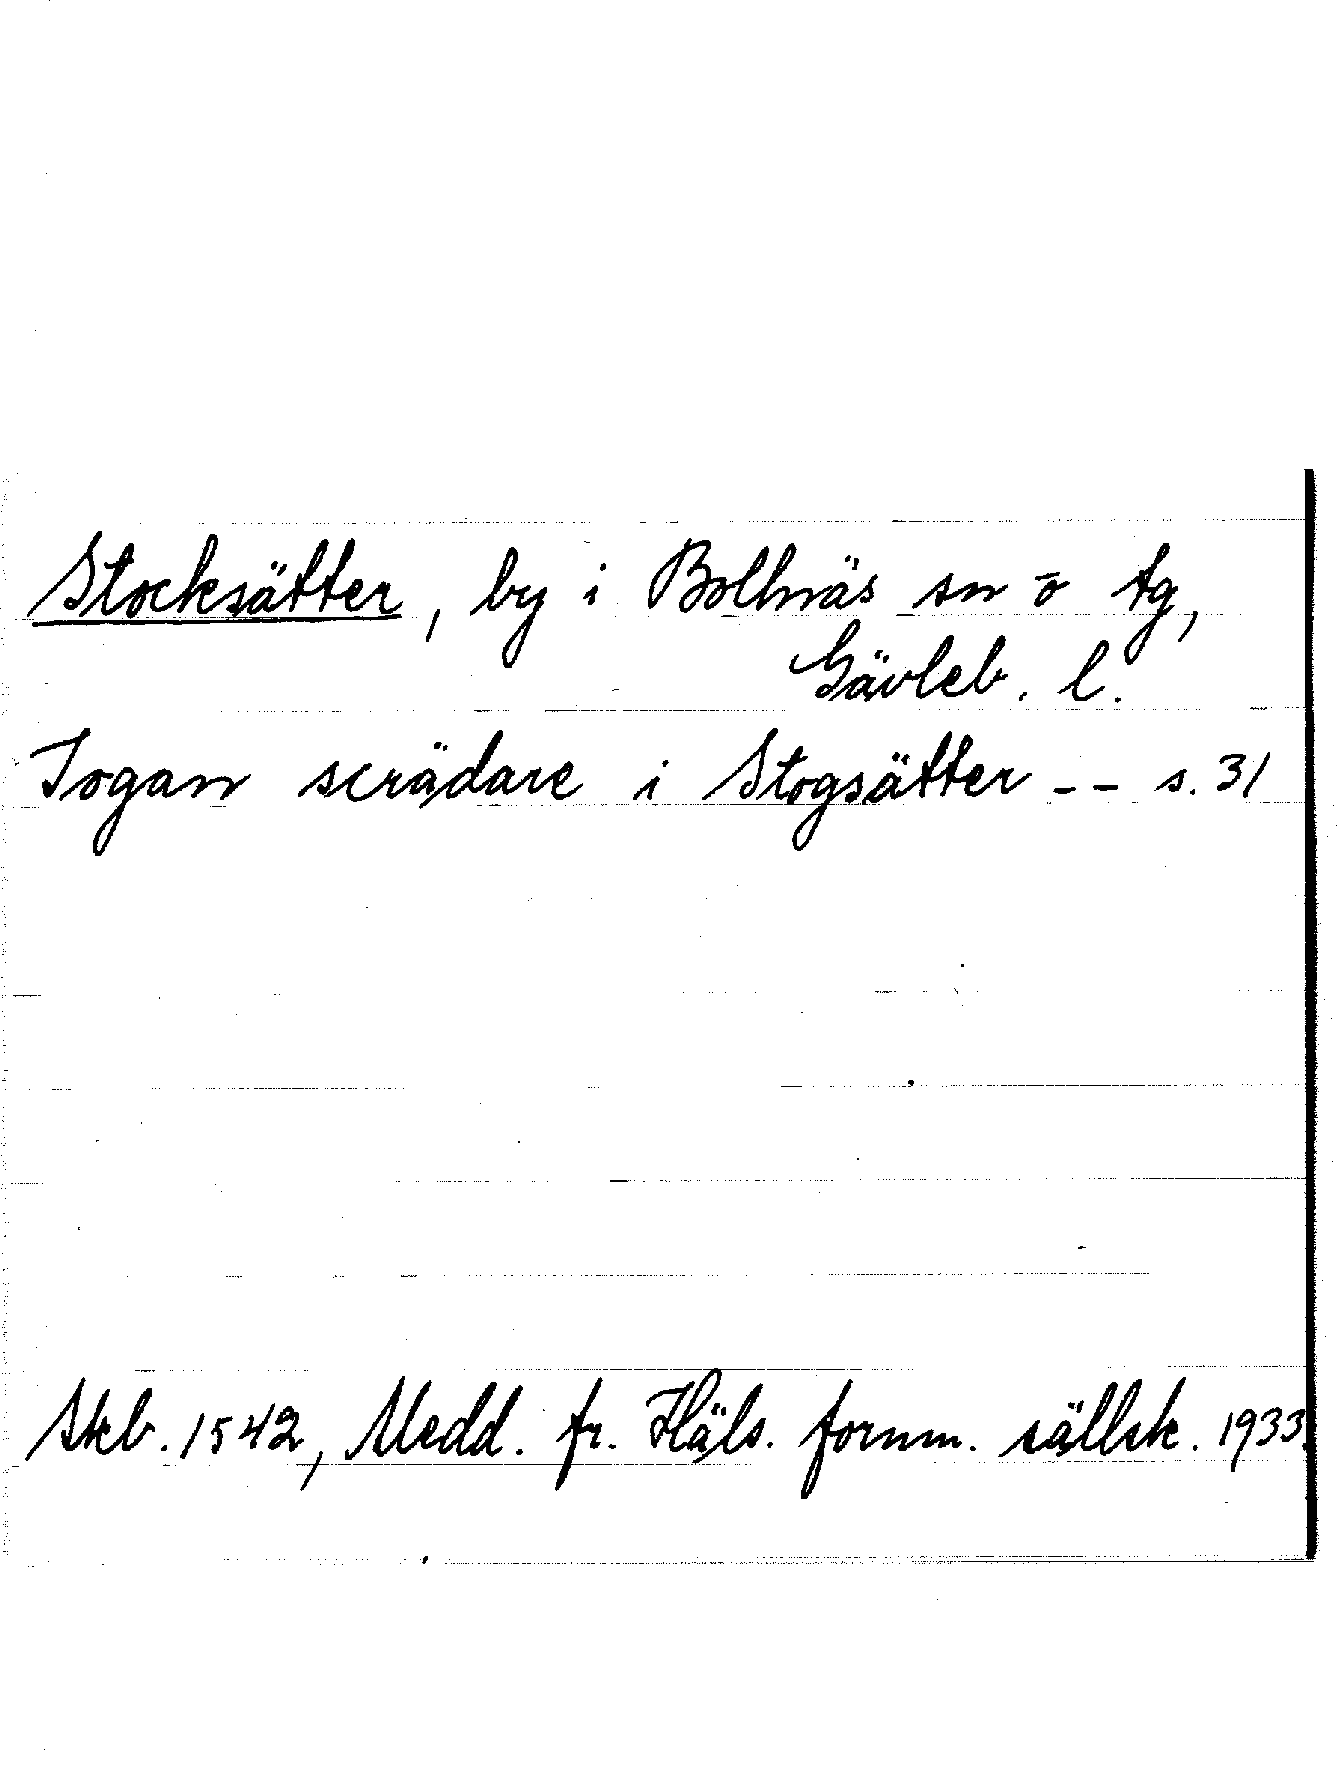 Stocksätter, by i Bollnäs sn o tg,
Gävleb. l.
Jogan scrädare i Stogsätter -- s. 31
Skb. 1542, Medd. fr. Häls. fornm. sällsk. 1933.